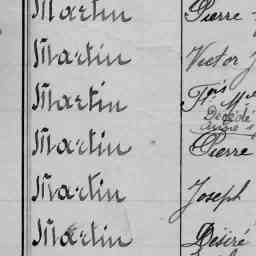 Martin Pierre
Martin Victor J
Martin Fois Mie
Décédé
Martin Pierre
Martin Joseph
Martin Désiré